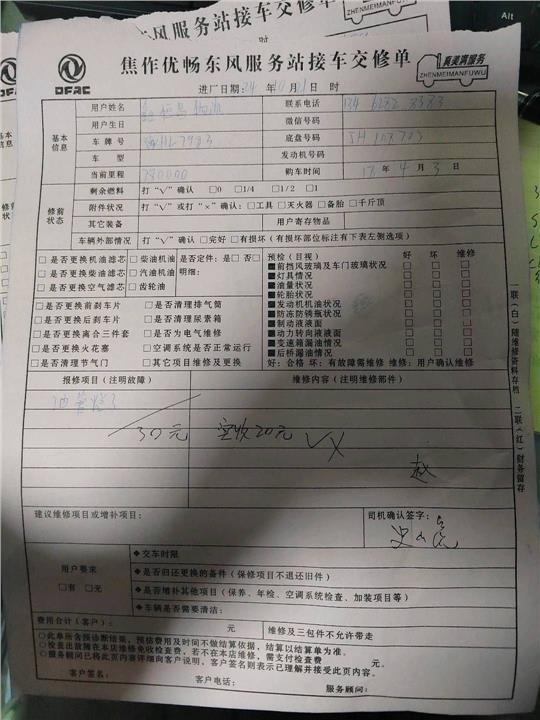 Alt
东风服务站接车交修单
ZHENMEIMANFUWU
DFAC
焦作优畅东风服务站接车交修单
真美满服务
ZHENMEIMANFUWU
进厂日期:24 年 10 月 21 日 时
基本信息
用户姓名
联系电话
用户生日
微信号码
车牌号
底盘号码
车型
发动机号码
当前里程 280000
购车时间 18 年 4 月 3 日
修前状态
剩余燃料 打“√”确认 □0 □1/4 □1/2 □1
附件状况 打“√”或打“×”确认:□工具□灭火器□备胎□千斤顶
其它装备 用户寄存物品
车辆外部情况 打“√”确认□完好□有损坏(有损坏部位标注有下表左侧选项)
□是否更换机油滤芯 □柴油机油 是否定件:是□否□
□是否更换柴油滤芯 □汽油机油 明细:
□是否更换空气滤芯 □齿轮油
□是否更换前刹车片 □是否清理排气筒
□是否更换后刹车片 □是否清理尿素箱
□是否更换离合三件套 □是否为电气维修
□是否更换火花塞 □空调系统是否正常运行
□是否清理节气门 □其它项目维修及更换
预检(目视) 好 坏 维修
■前挡风玻璃及车门玻璃状况 □ □ □
■灯具情况 □ □ □
■油量状况 □ □ □
■轮胎状况 □ □ □
■发动机机油状况 □ □ □
■防冻防锈瓶状况 □ □ □
■制动液液面 □ □ □
■动力转向液液面 □ □ □
■变速箱漏油情况 □ □ □
■后桥漏油情况 □ □ □
好:合格 坏:有故障需维修 维修:用户确认维修
报修项目(注明故障)
维修内容(注明维修部件)
30元 实收20元 √×
赵
建议维修项目或增补项目:
司机确认签字:
用户要求
□有 □无
◆交车时限
◆是否归还更换的备件(保修项目不退还旧件)
◆是否增补其他项目(保养、年检、空调系统检查、加装项目等)
◆车辆是否需要清洁:
费用合计(客户): 元 维修及三包件不允许带走
○此单所含预诊断结果,预估费用及时间不做结算依据,结算以结算单为准。
○检查出故障在本店维修免收检查费,若不在本店维修,需支付检查费 元。
○服务顾问已将此页内容详细向客户说明,客户签名则表示已理解并接受此页内容。
客户签名: 客户电话: 服务顾问:
一联(白)随维修资料存档 二联(红)财务留存